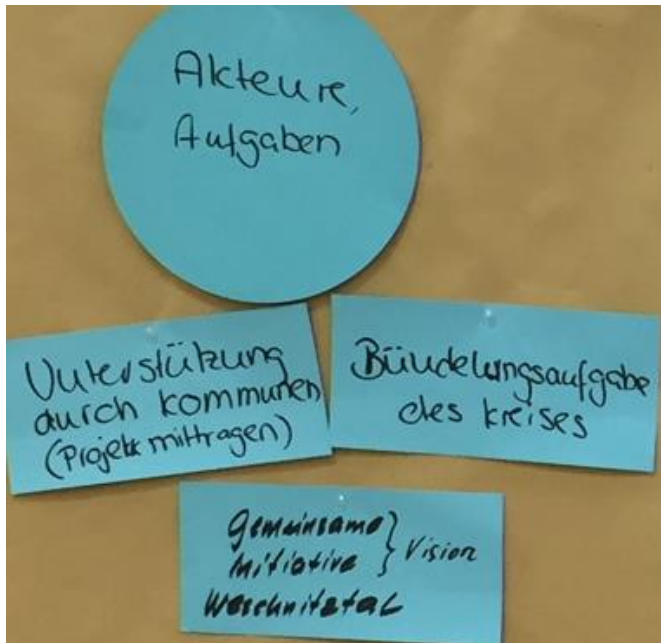 Akteure,
Aufgaben
Unterstützung
durch Kommunen
(Projekt mittragen)
Bündelungsaufgabe
des Kreises
Gemeinsame
Initiative } Vision
Weschnitztal